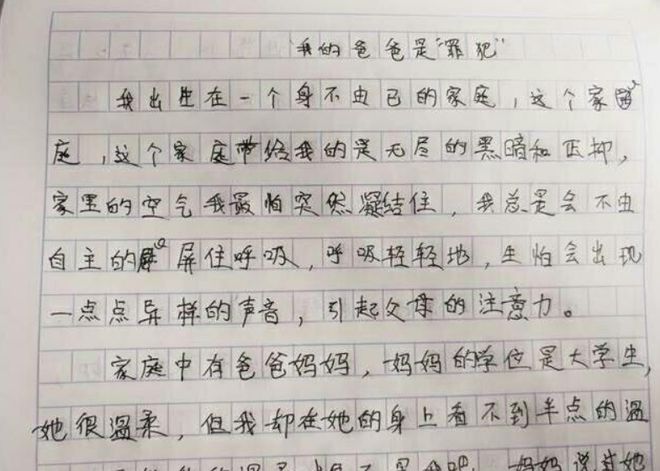 “我的爸爸是“罪犯”
我出生在一个身不由已的家庭，这个家
庭，这个家庭带给我的是无尽的黑暗和压抑，
家里的空气我最怕突然凝结住，我总是会不由
自主的屏住呼吸，呼吸轻轻地，生怕会出现
一点点异样的声音，引起父母的注意力。
家庭中有爸爸妈妈，妈妈的学位是大学生，
她很温柔，但我却在她的身上看不到半点的温
妈妈说过她